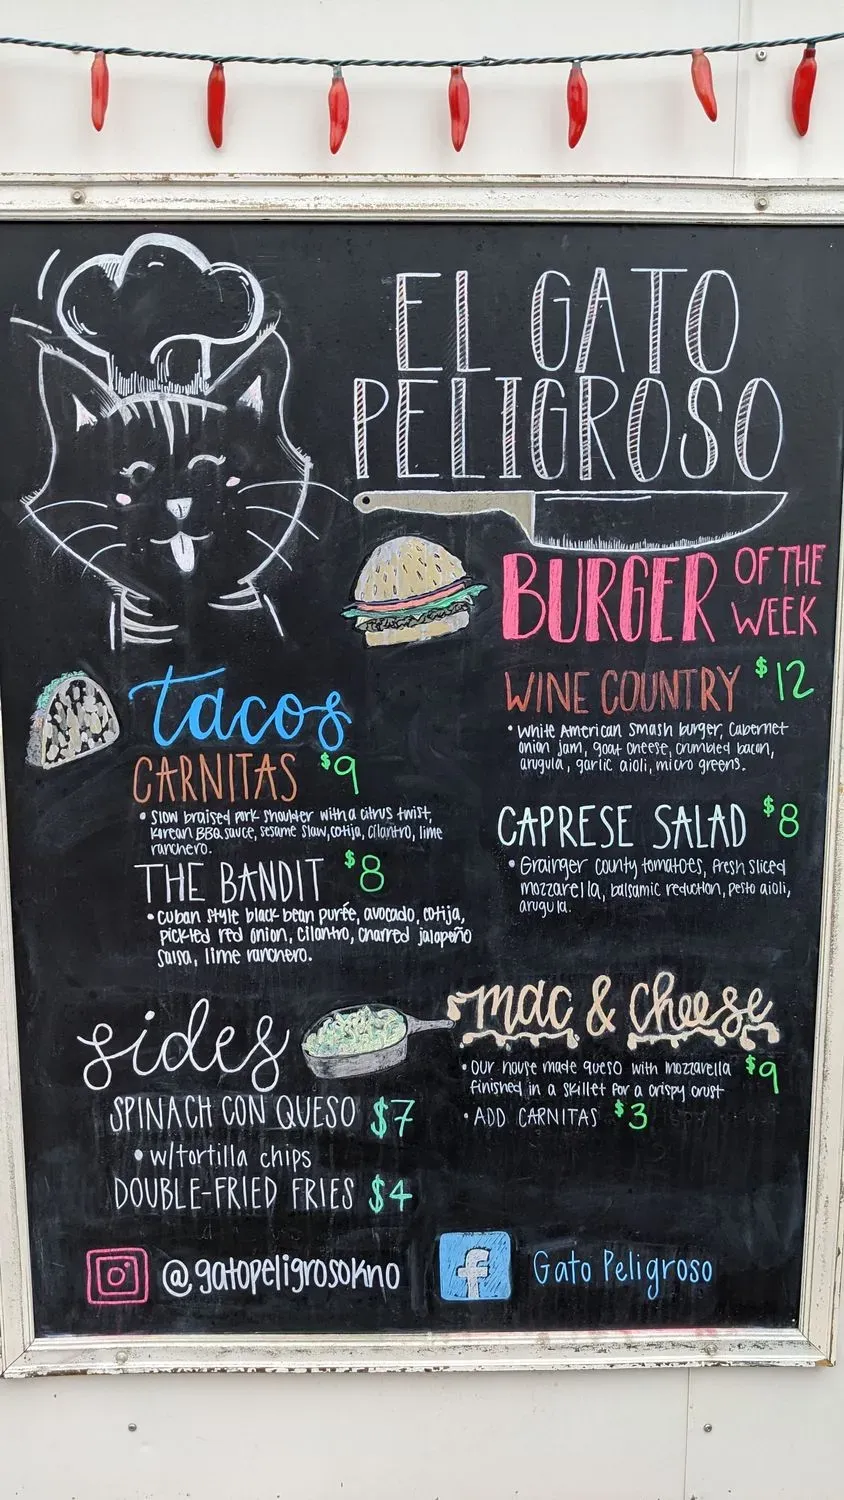 EL GATO
PELIGROSO
BURGER OF THE WEEK
WINE COUNTRY $12
• White American Smash burger, Cabernet
onion jam, goat cheese, crumbled bacon,
arugula, garlic aioli, micro greens.
CAPRESE SALAD $8
• Grainger County tomatoes, fresh sliced
mozzarella, balsamic reduction, pesto aioli,
arugula.
tacos
CARNITAS $9
• Slow braised pork shoulder with a citrus twist,
Korean BBQ sauce, sesame slaw, cotija, cilantro, lime
ranchero.
THE BANDIT $8
• Cuban style black bean purée, avocado, cotija,
pickled red onion, cilantro, charred jalapeño
salsa, lime ranchero.
sides
SPINACH CON QUESO $7
• w/tortilla chips
DOUBLE-FRIED FRIES $4
mac & cheese
• Our house made queso with mozzarella $9
finished in a skillet for a crispy crust
• ADD CARNITAS $3
@gatopeligrosoKno
f Gato Peligroso